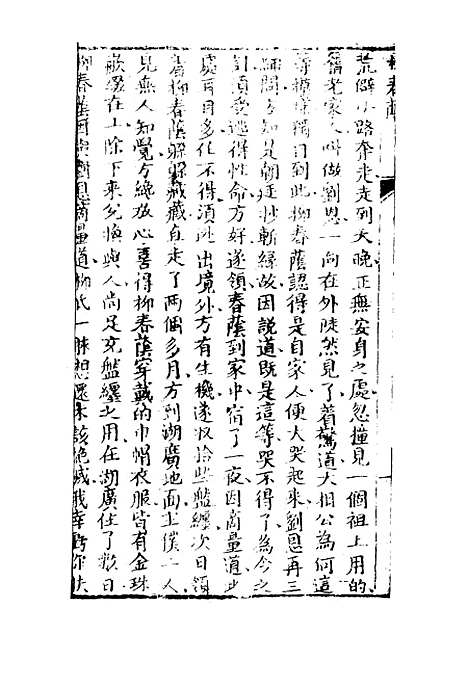 荒僻小路奔走走到天晚正無安身之處忽撞見一個祖上用的
舊老家人叫做劉恩一向在外陡然見了着驚道大相公為何這
等模樣獨自到此柳春蔭認得是自家人便大哭起來劉恩再三
細問方知是朝廷抄斬緣故因説道既是這等哭不得了為今之
計須要逃得性命方好遂領春蔭到家中宿了一夜因商量道此
處耳目多化不得須逃出境外方有生機遂收拾些盤纏次日領
着柳春蔭躲躲藏藏直走了兩個多月方到湖廣地面主僕二人
見無人知覺方纔放心喜得柳春蔭穿戴的巾帽衣服皆有金珠
嵌綴在上除下來兌換與人尚足充盤纏之用在湖廣住了數日
柳春蔭因與劉恩商量道柳氏一脉想還未該絶滅我幸虧你扶